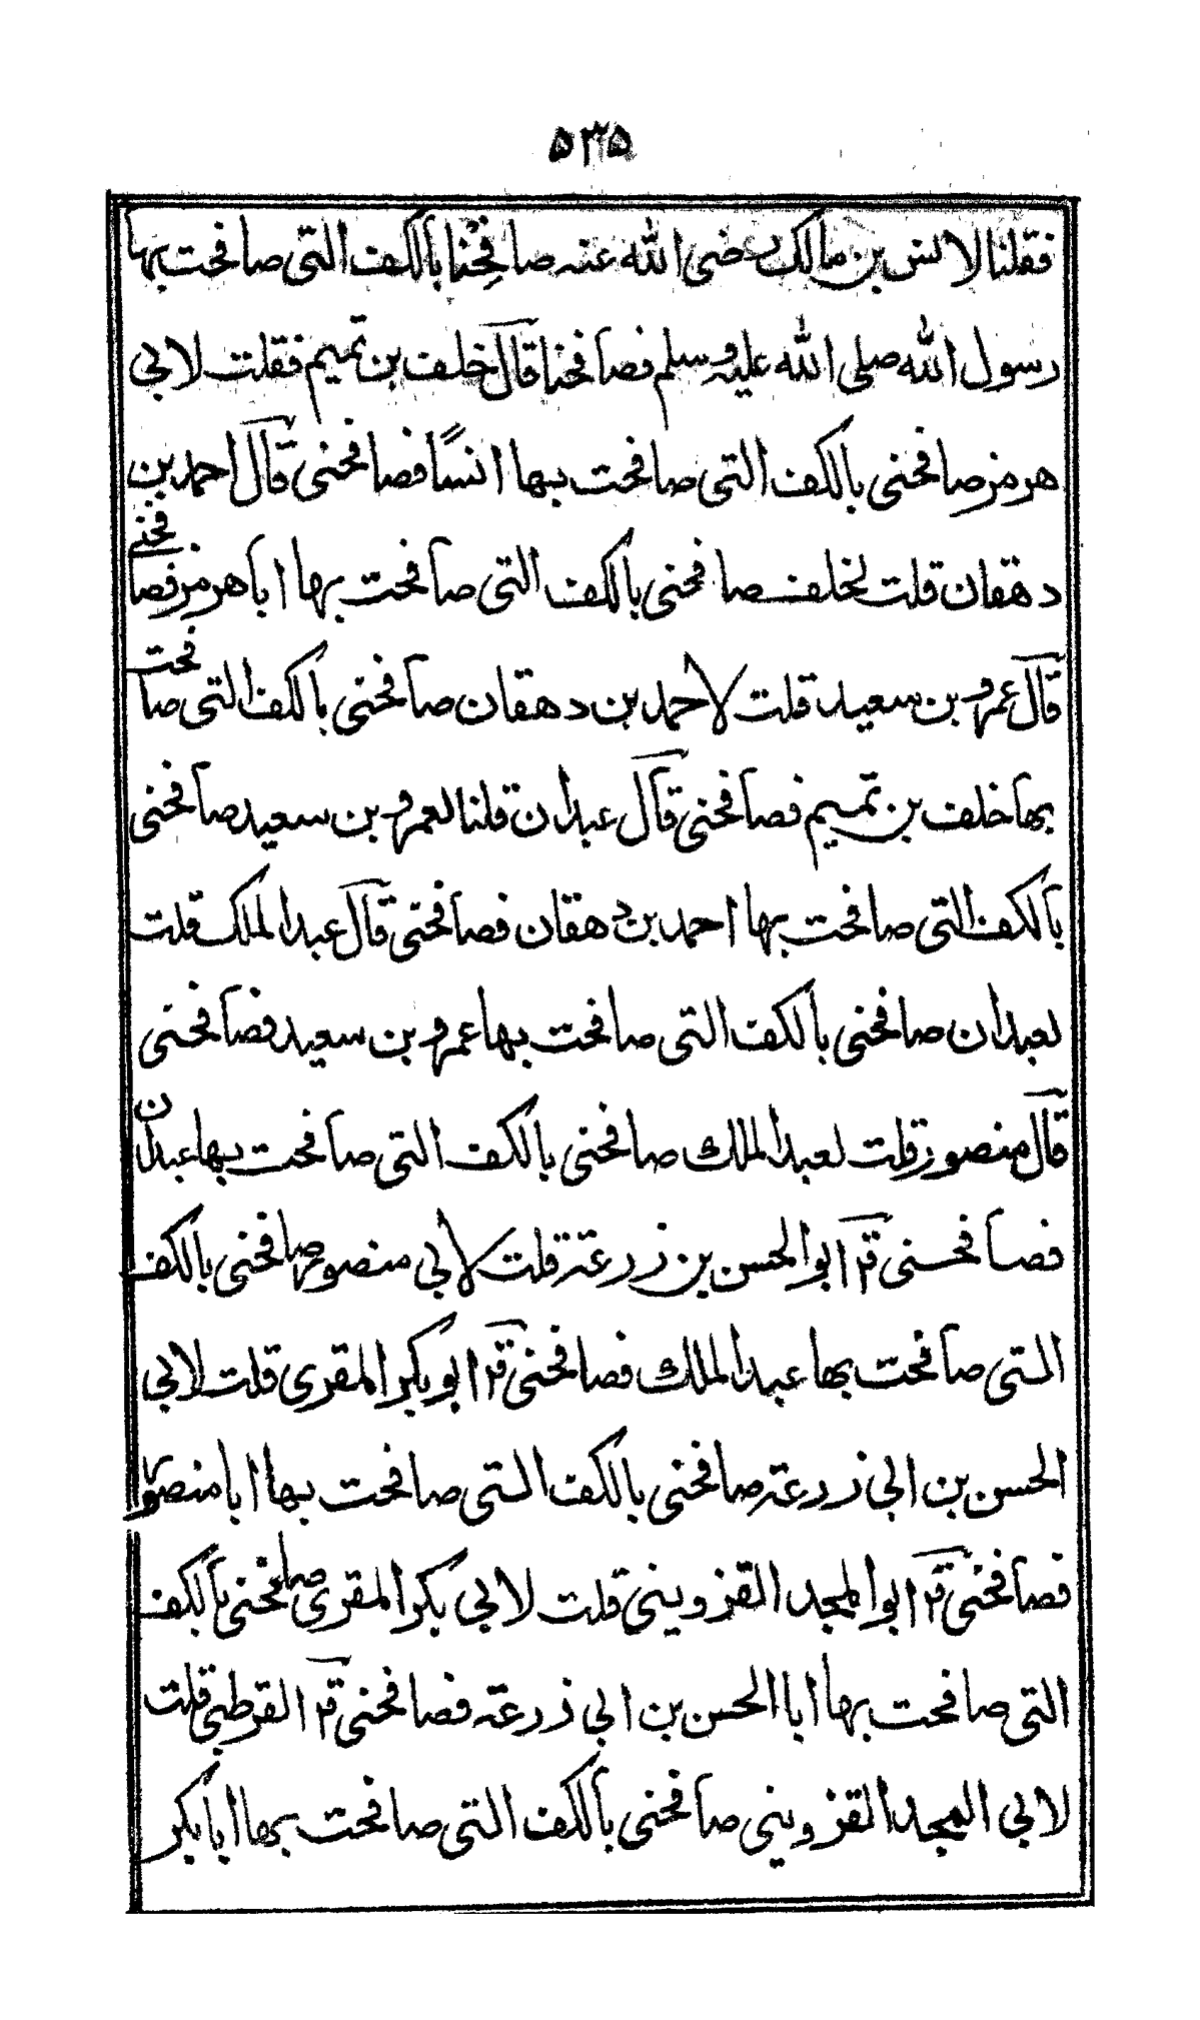 ۵۳۵
فقلنا لانس بن مالك رضی الله عنه صافِحْنا بالكف التی صافحت بها
رسول الله صلی الله علیه وسلم فصافحنا قال خلف بن تمیم فقلت لابی
هرمز صافحنی بالكف التی صافحت بها انسًا فصافحنی قال احمد بن
دهقان قلت لخلف صافحنی بالكف التی صافحت بها اباهرمز فصافحنی
قال عمرو بن سعید قلت لاحمد بن دهقان صافحنی بالكف التی صافحت
بها خلف بن تمیم فصافحنی قال عبدان قلنا لعمرو بن سعید صافحنی
بالكف التی صافحت بها احمد بن دهقان فصافحنی قال عبد الملك قلت
لعبدان صافحنی بالكف التی صافحت بها عمرو بن سعید فصافحنی
قال منصور قلت لعبد الملك صافحنی بالكف التی صافحت بها عبدان
فصافحنی قال ابوالحسن بن زرعة قلت لابی منصور صافحنی بالكف
التی صافحت بها عبد الملك فصافحنی قال ابوبكر المقری قلت لابی
الحسن بن ابی زرعة صافحنی بالكف التی صافحت بها ابا منصور
فصافحنی قال ابوالمجد القزوینی قلت لابی بكر المقری صافحنی بالكف
التی صافحت بها ابا الحسن بن ابی زرعة فصافحنی قال القرطبی قلت
لابی المجد القزوینی صافحنی بالكف التی صافحت بها ابابكر